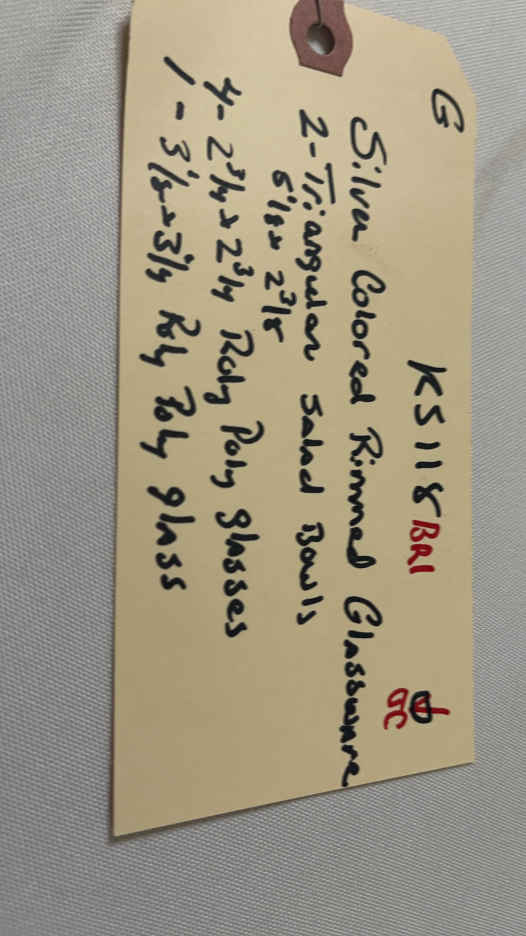 G KS118 BRI
GC
Silver Colored Rimmed Glassware
2 - Triangular Salad Bowls
6 1/8 x 2 3/8
4 - 2 3/4 x 2 3/4 Roly Poly glasses
1 - 3 1/8 x 3 1/4 Roly Poly glass